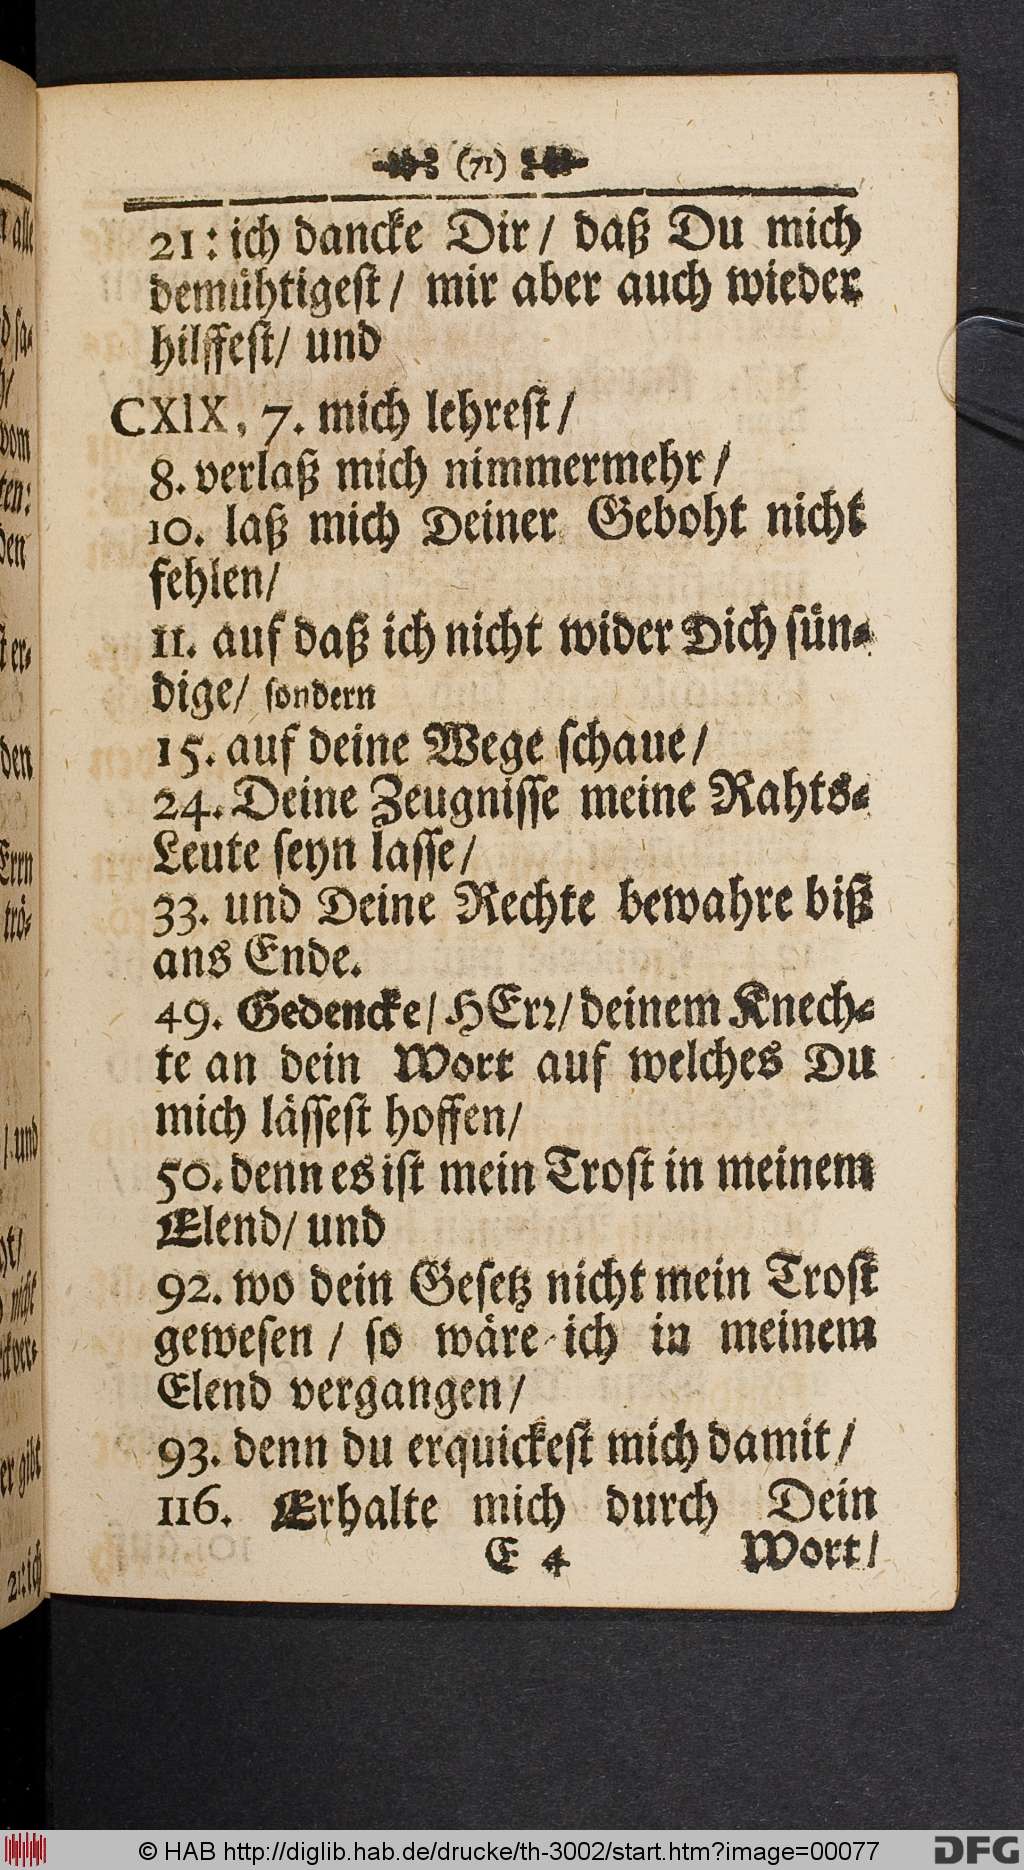 (71)
21: ich dancke Dir/ daß Du mich
demühtigest/ mir aber auch wieder
hilffest/ und
CXIX, 7. mich lehrest/
8. verlaß mich nimmermehr/
10. laß mich Deiner Geboht nicht
fehlen/
11. auf daß ich nicht wider Dich sün-
dige/ sondern
15. auf deine Wege schaue/
24. Deine Zeugnisse meine Rahts-
Leute seyn lasse/
33. und Deine Rechte bewahre biß
ans Ende.
49. Gedencke/ HErr/ deinem Knech-
te an dein Wort auf welches Du
mich lässest hoffen/
50. denn es ist mein Trost in meinem
Elend/ und
92. wo dein Gesetz nicht mein Trost
gewesen / so wäre ich in meinem
Elend vergangen/
93. denn du erquickest mich damit/
116. Erhalte mich durch Dein
E 4 Wort/
© HAB http://diglib.hab.de/drucke/th-3002/start.htm?image=00077
DFG